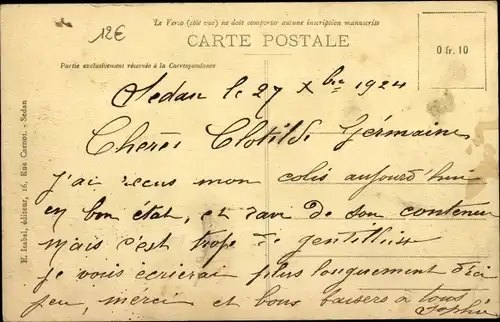 Le Verso (côté vue) ne doit comporter aucune inscription manuscrite
12€
CARTE POSTALE
Partie exclusivement réservée à la Correspondance
0 fr. 10
E. Isabel, éditeur, 16, Rue Carnot. - Sedan
Sedan le 27 Xbre 1924
Chères Clotilde Germaine
j'ai recus mon colis aujourd'hui
en bon état, et ravi de son contenu
mais c'est trope de gentillisse
je vous écrierai plus longuement d'ici
peu, mérci et bons baisers à tous
Sophie